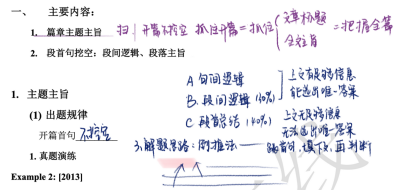 一、 主要内容：
1. 篇章主题主旨 扫 开篇不挖空 抓住开篇=抓住{文章标题 全文主旨 =把握全篇
2. 段首句挖空：段间逻辑、段落主旨
A 句间逻辑 上文有足够信息
1. 主题主旨 B. 段间逻辑 (40%) 能选出唯一答案
(1) 出题规律 C 段首总结 (40%) 上文无足够信息
开篇首句 不挖空 无法选出唯一答案
3.解题思路：倒推法—— 略首句，读下文，再判断
1. 真题演练
Example 2: [2013]